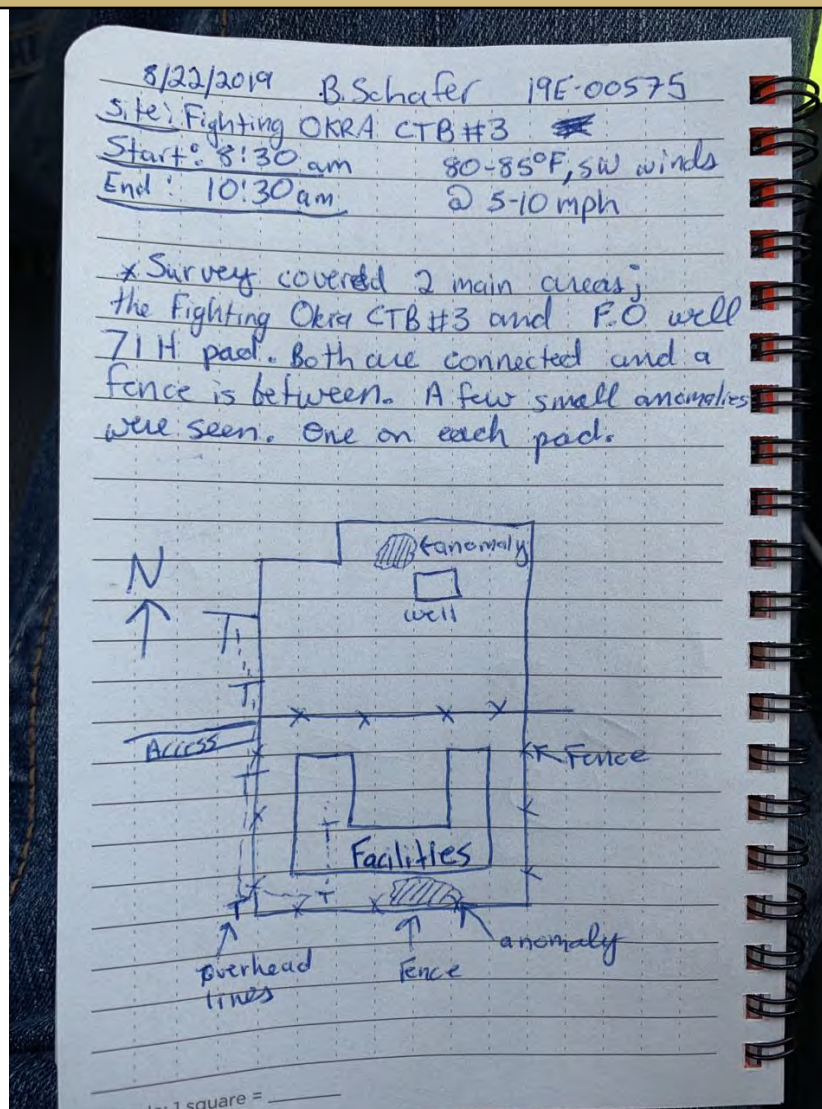 8/22/2019 B. Schafer 19E-00575
Site: Fighting OKRA CTB #3
Start: 8:30 am 80-85°F, SW winds
End: 10:30 am @ 5-10 mph
* Survey covered 2 main areas;
the Fighting Okra CTB #3 and F.O well
71H pad. Both are connected and a
fence is between. A few small anomalies
were seen. One on each pad.
anomaly
N
well
Access
Fence
Facilities
anomaly
overhead
lines
Fence
1 square =